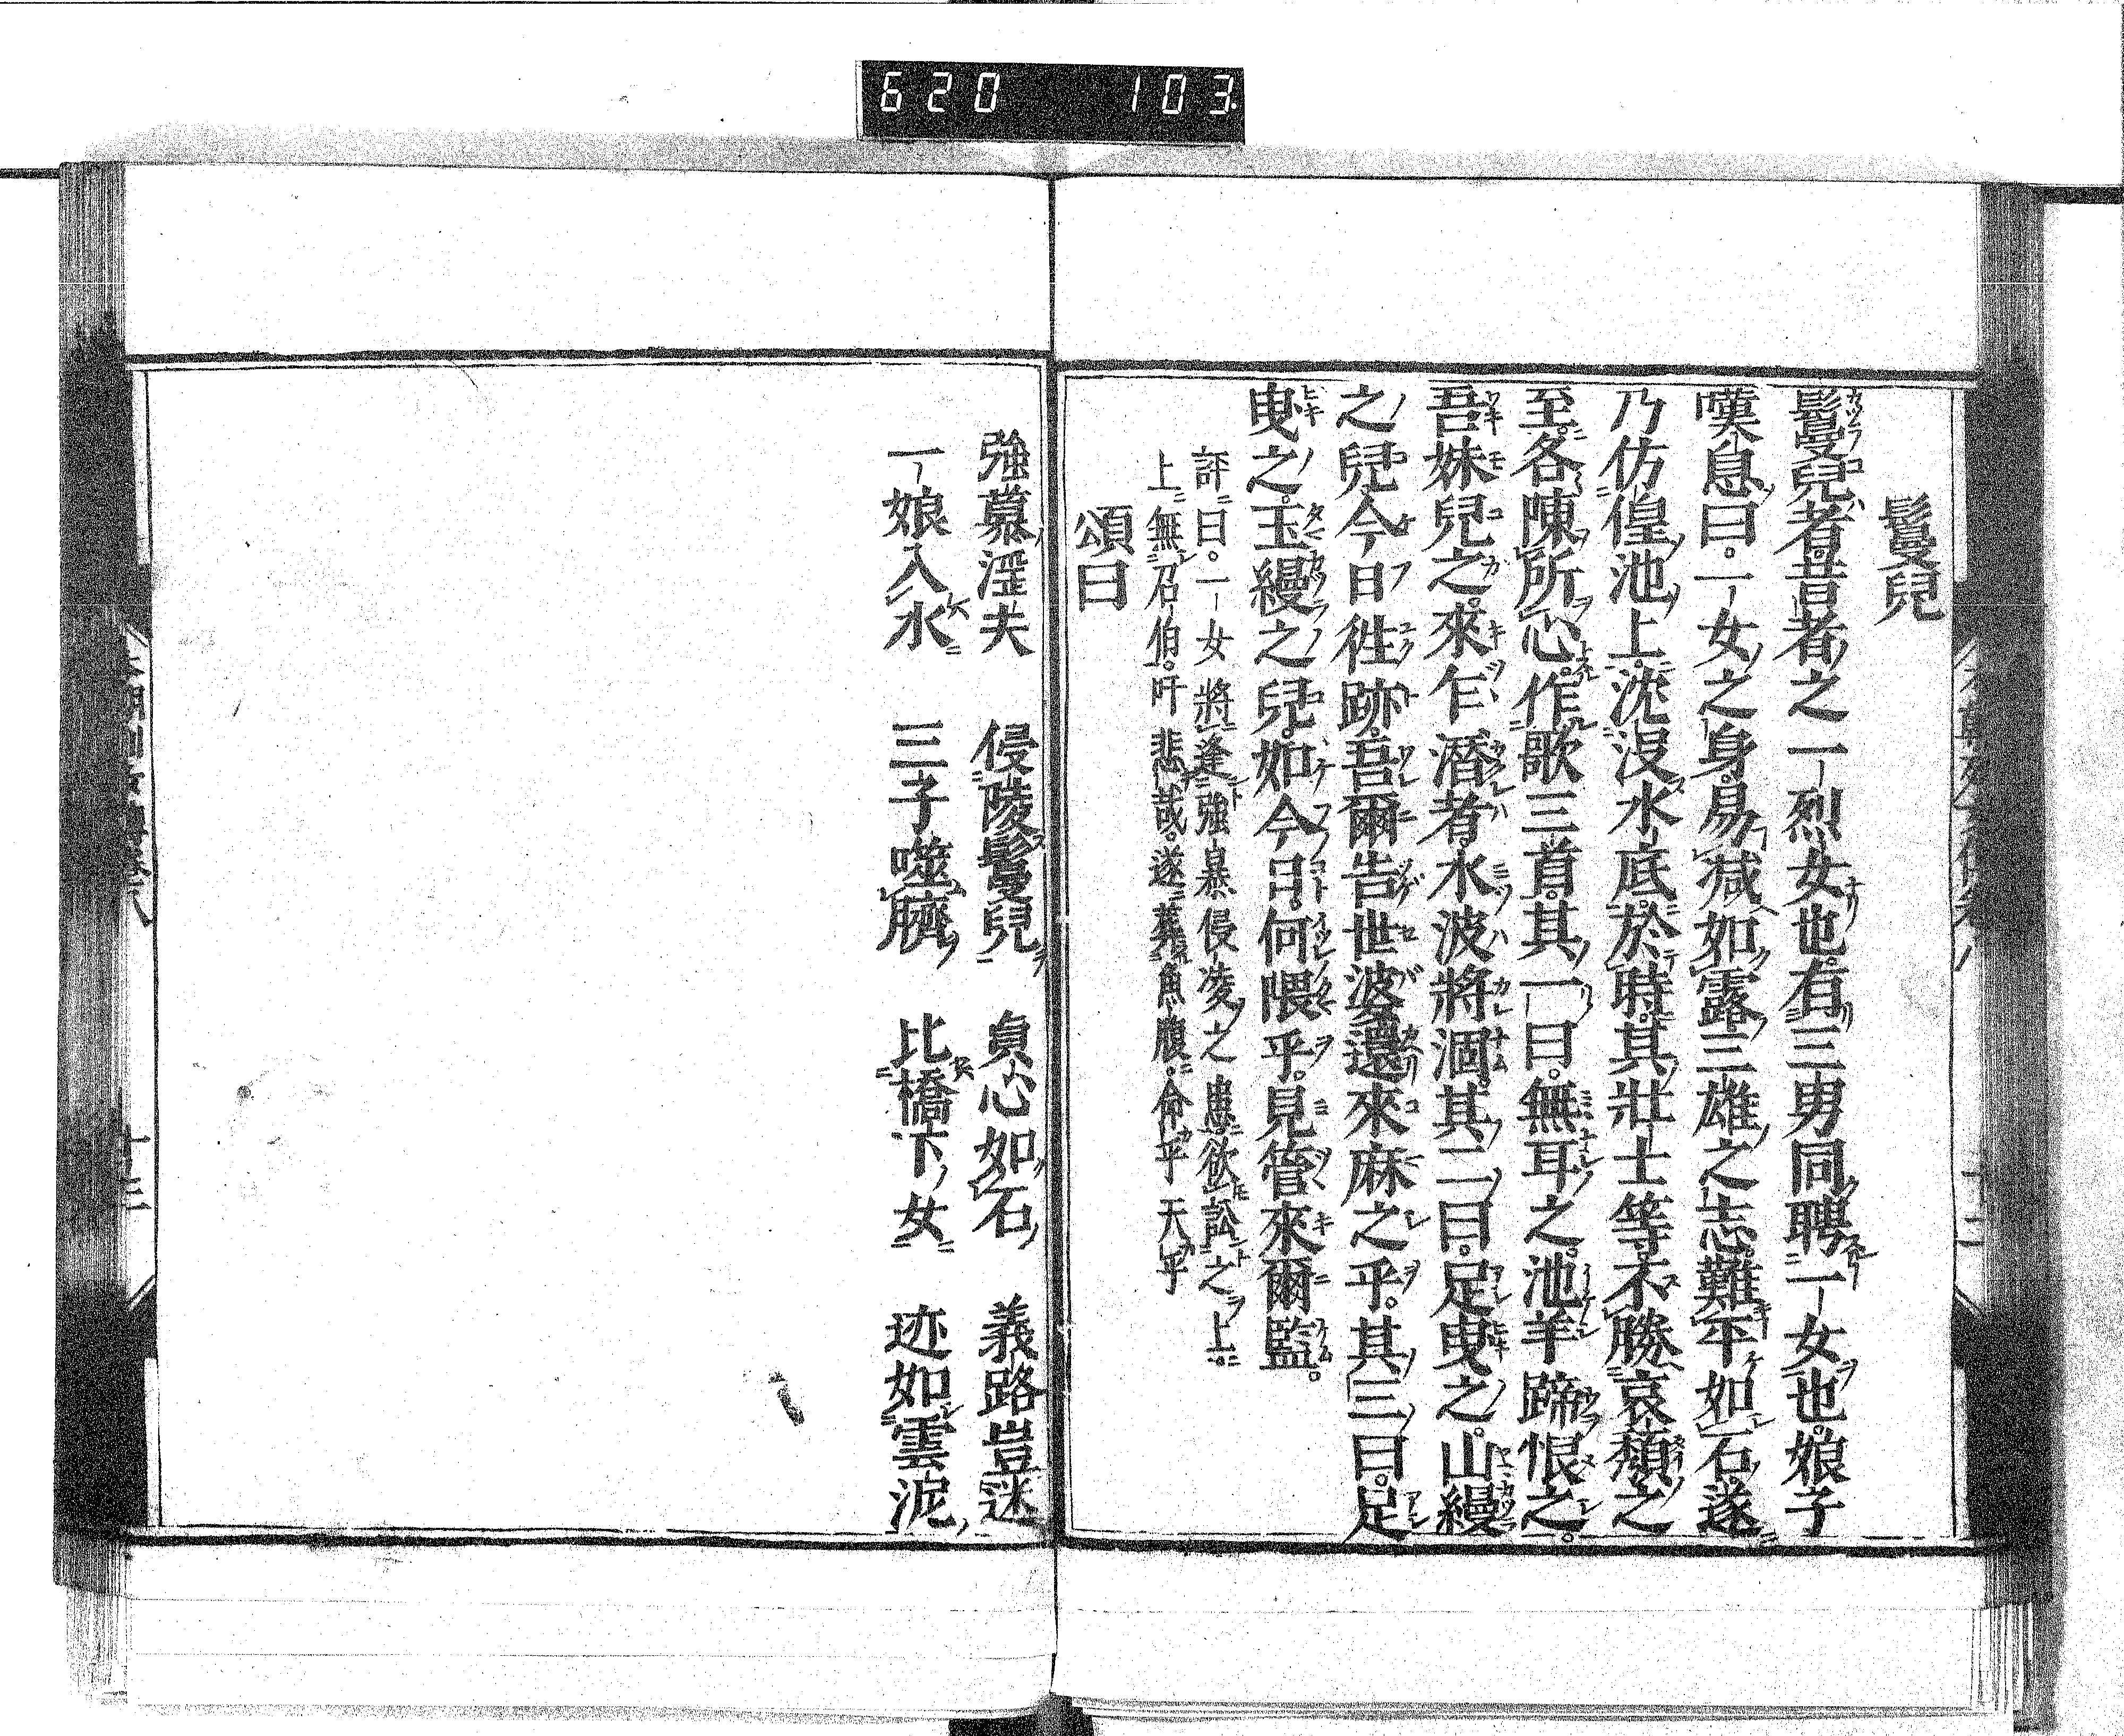 620 103
鬘兒
鬘兒者。昔者之一烈女也。有三男同聘一女也。娘子
嘆息曰。一女之身。易滅如露。三雄之志。難平如石。遂
乃仿偟池上。沈沒水底。於時。其壯士等。不勝哀頽之
至。各陳所心。作歌三首。其一曰。無耳之。池羊蹄恨之。
吾妹兒之。來乍潛者。水波將涸。其二曰。足曳之。山縵
之兒。今日往跡。吾爾告世婆。還來麻之乎。其三曰。足
曳之。玉縵之兒。如今日。何隈乎。見管來爾監。
評曰。一女將逢強暴侵凌之患。欲訟之上。
上無召伯。吁悲哉。遂葬魚腹。命乎天乎
頌曰
強慕淫夫 侵陵鬘兒 貞心如石 義路豈迷
一娘入水 三子噬臍 比橋下女 迹如雲泥